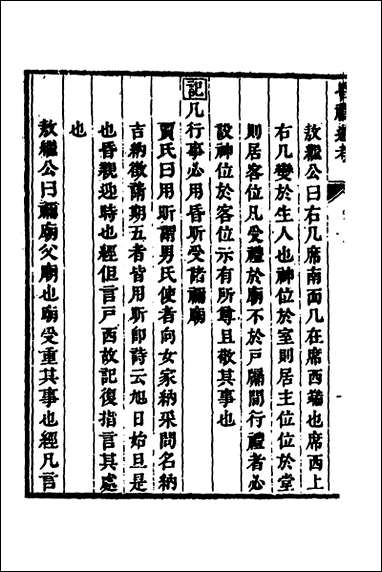 敖繼公曰右几席南面几在席西端也席西上
右几變於生人也神位於室則居主位位於堂
則居客位凡受禮於廟不於戶牖間行禮者必
設神位於客位示有所尊且敬其事也
記凡行事必用昏昕受諸禰廟
賈氏曰用昕謂男氏使者向女家納采問名納
吉納徵請期五者皆用昕即詩云旭日始旦是
也昏親迎時也經但言戶西故記復指言其處
也
敖繼公曰禰廟父廟也廟受重其事也經凡言